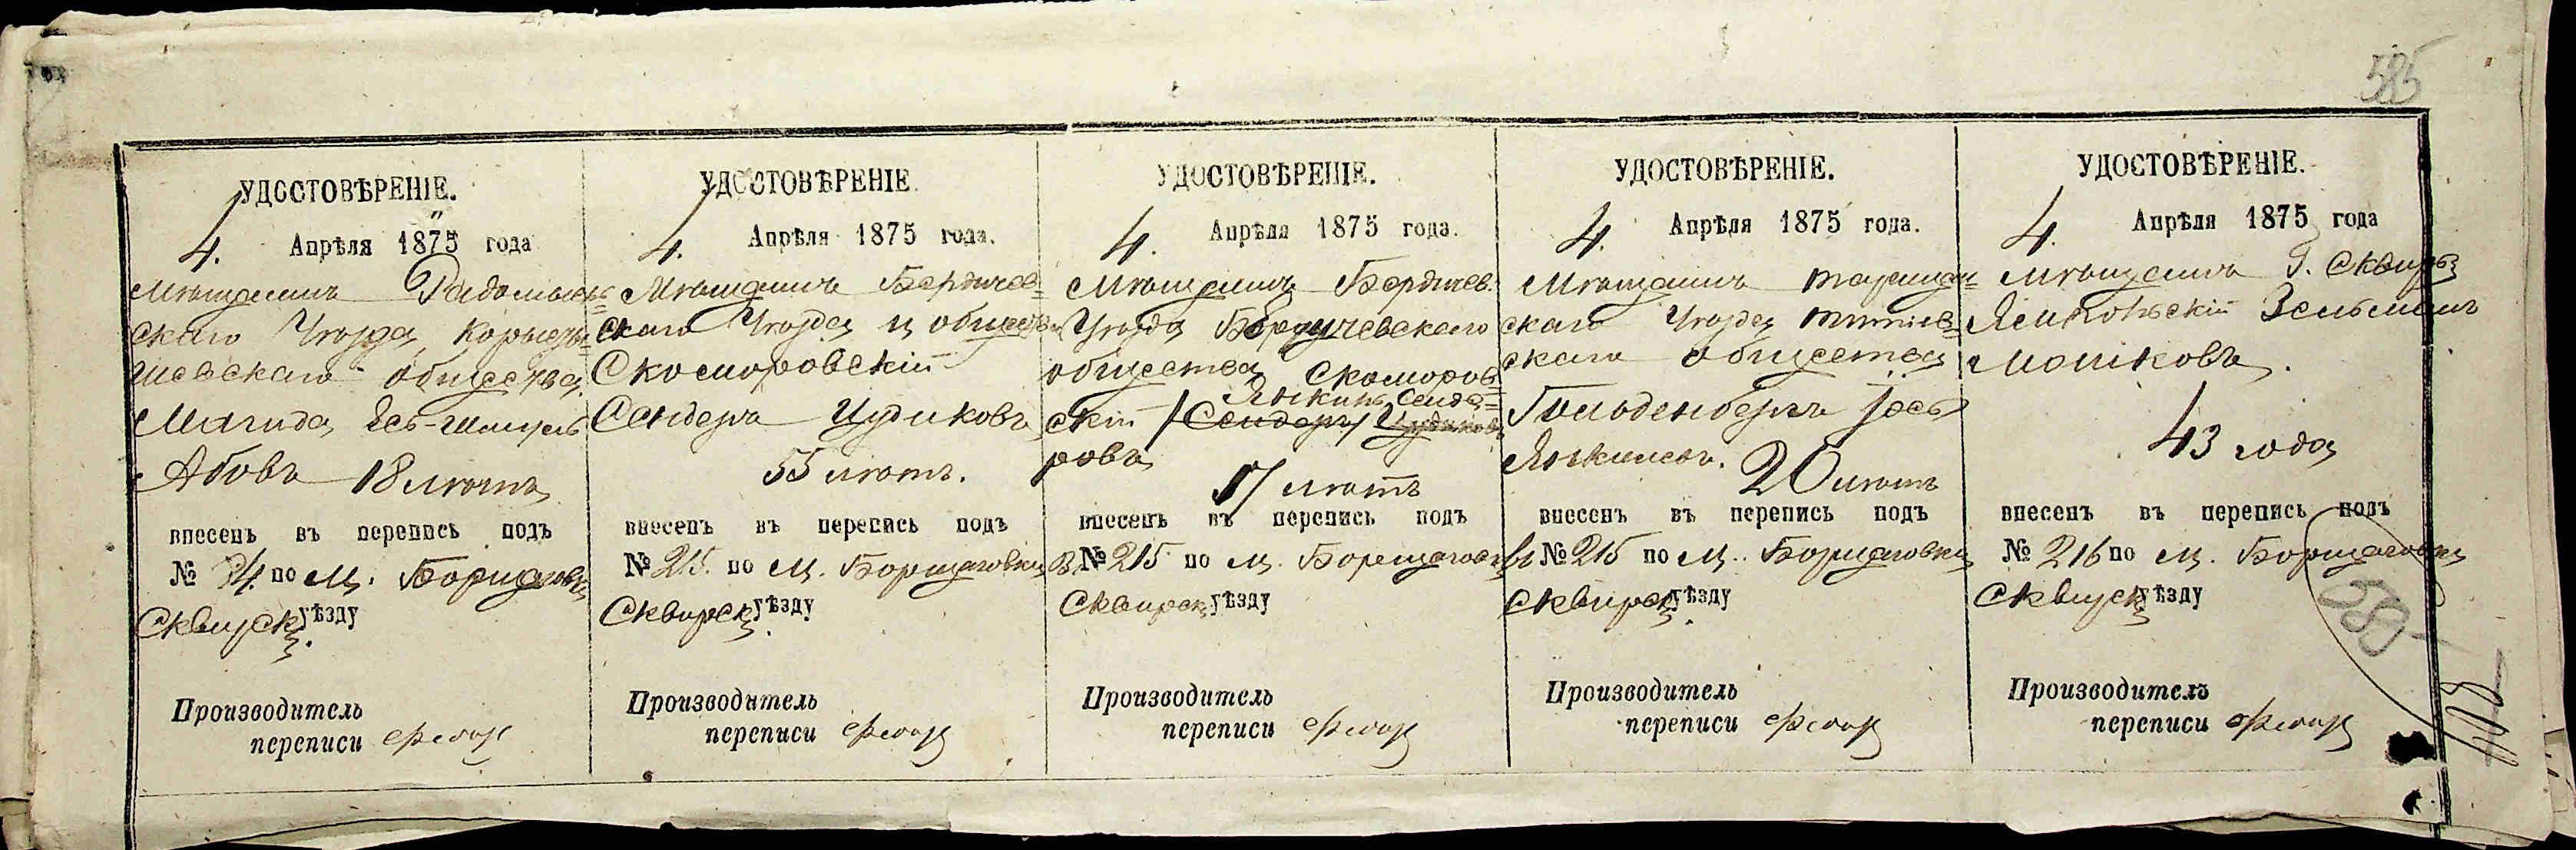 585
УДОСТОВѢРЕНІЕ.
4. Апрѣля 1875 года
Мѣщанинъ Радомысль
скаго Уѣзда, Коросты
шевскаго общества,
Магида
Абовъ 18 лѣтъ
внесенъ въ перепись подъ
№ по м. Борщаговкѣ
Сквирск. уѣзду
Производитель
переписи
УДОСТОВѢРЕНІЕ
4. Апрѣля 1875 года.
Мѣщанинъ Бердичев=
скаго Уѣзда и общества
Скоморовскій
Сендеръ Цудиковъ
55 лѣтъ.
внесенъ въ перепись подъ
№ 215. по м. Борщаговкѣ
Сквирск. уѣзду
Производитель
переписи
УДОСТОВѢРЕНІЕ.
4. Апрѣля 1875 года.
Мѣщанинъ Бердичев.
Уѣзда Бердичевскаго
общества, Скоморов=
Янкинъ Сенде=
скій /Сендеръ/ Цудиковъ
ровъ
17 лѣтъ
внесенъ въ перепись подъ
№ 215 по м. Борещаговкѣ
Сквирск. уѣзду
Производитель
переписи
УДОСТОВѢРЕНІЕ.
4. Апрѣля 1875 года.
Мѣщанинъ Таращан=
скаго Уѣзда Тетіев=
скаго общества
Гольденбергъ Іось
Янкинов. 20 лѣтъ
внесенъ въ перепись подъ
№ 215 по м. Борщаговкѣ
Сквирск. уѣзду
Производитель
переписи
УДОСТОВѢРЕНІЕ.
4. Апрѣля 1875 года
Мѣщанинъ г. Сквиры
Ямпольскій Зельманъ
Мошковъ.
43 года
внесенъ въ перепись подъ
№ 216 по м. Борщаговкѣ
Сквирск. уѣзду
Производитель
переписи